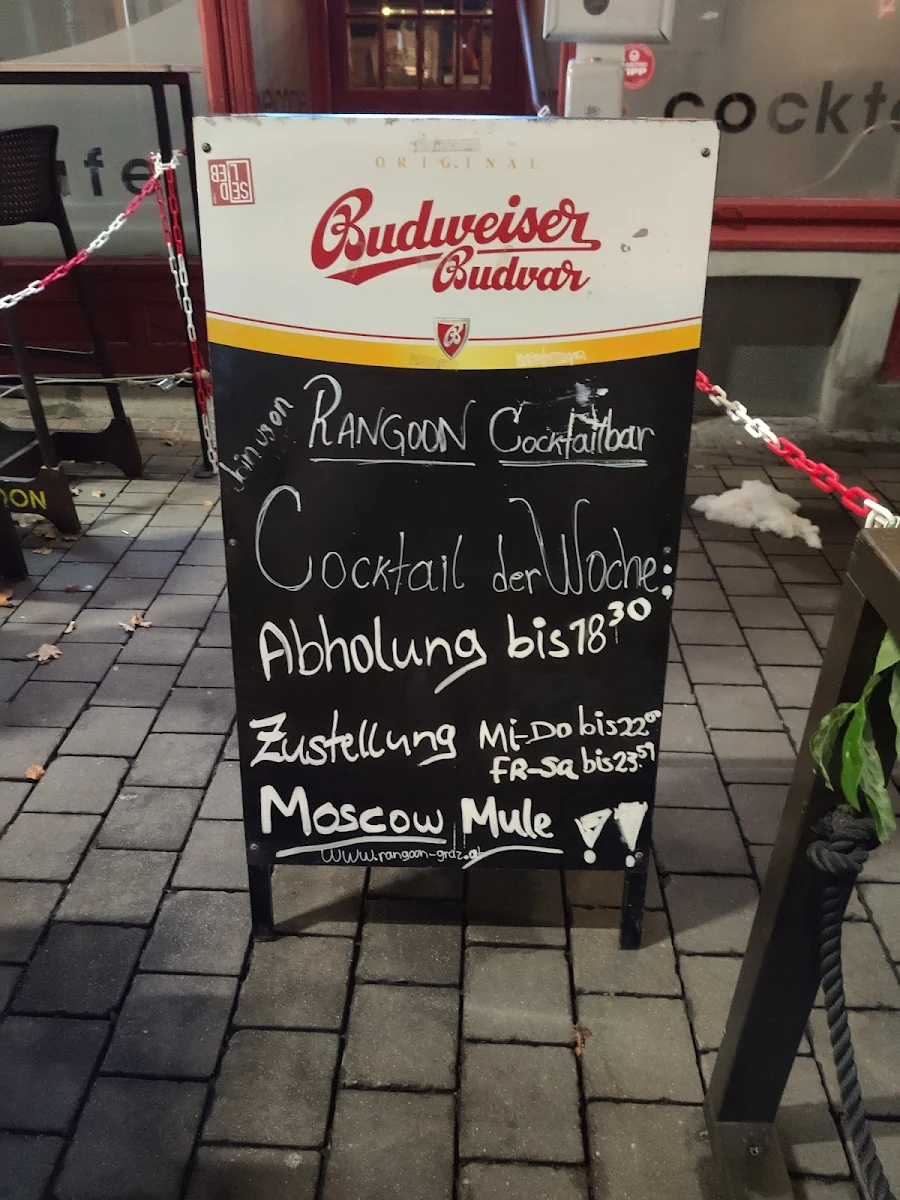 cockt
TIPP
afe
ORIGINAL
SEID
LIEB
Budweiser
Budvar
B
RANGOON Cocktailbar
Cocktail der Woche:
Abholung bis 18³⁰
Zustellung Mi-Do bis 22⁰⁰
FR-Sa bis 23⁵⁹
Moscow Mule !!
www.rangoon-graz.at
OON